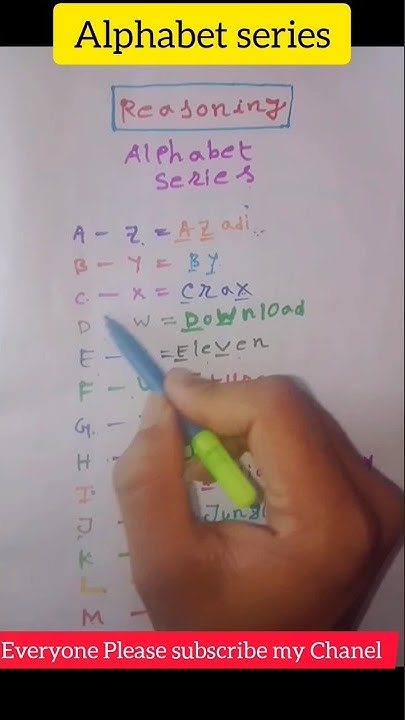 Alphabet series
Reasoning
Alphabet
Series
A - Z = AZadi..
B - Y = BY
C - X = CraX
D W = DoWnload
E - = EleVen
F -
G -
H -
I
J -
K -
L
M -
Everyone Please subscribe my Chanel